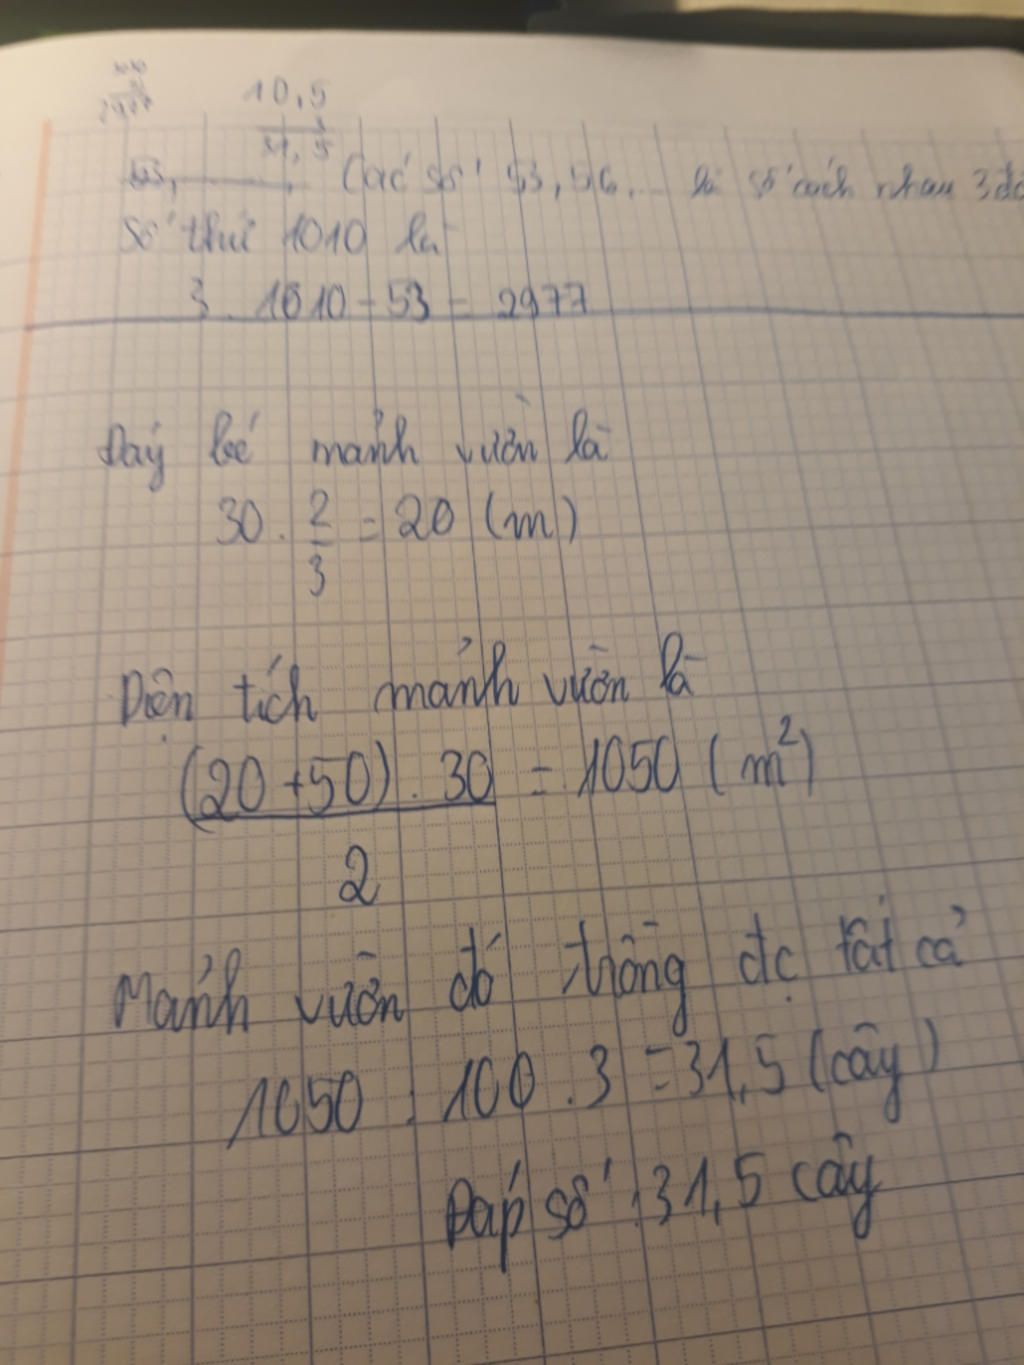 10,5
3
31,5
53, Các số 53, 56,... là số cách nhau 3 đ
Số thứ 1010 là
3 . 1010 - 53 = 2977
Đáy bé mảnh vườn là
30 . 2/3 = 20 (m)
Diện tích mảnh vườn là
(20 + 50) . 30 = 1050 (m²)
2
Mảnh vườn đó trồng đc tất cả
1050 : 100 . 3 = 31,5 (cây)
Đáp số : 31,5 cây